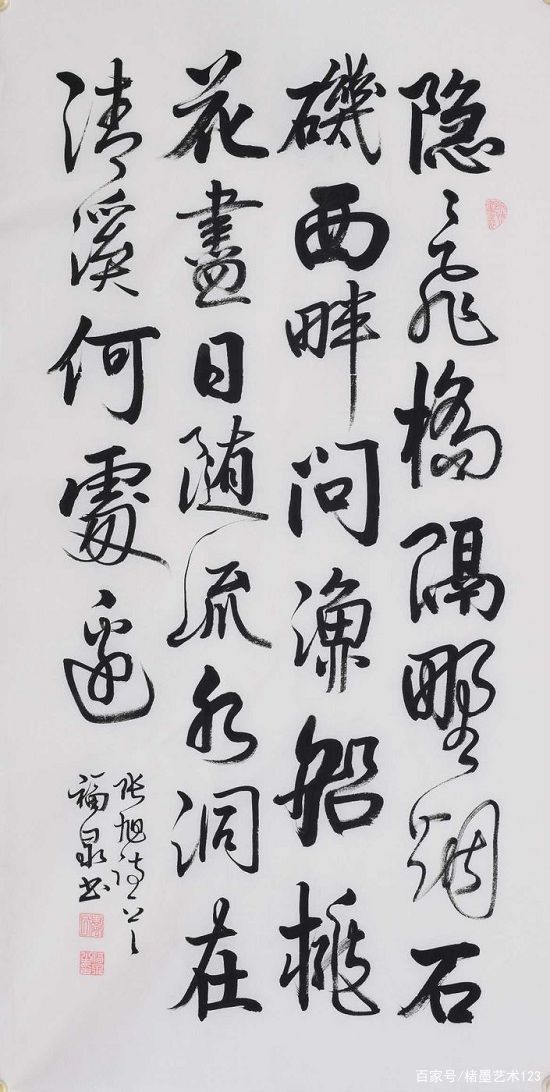 隐〻飛橋隔野烟石
磯西畔问漁船桃
花盡日随流水洞在
清溪何處邊
张旭诗一首
福泉书
百家号/楮墨艺术123